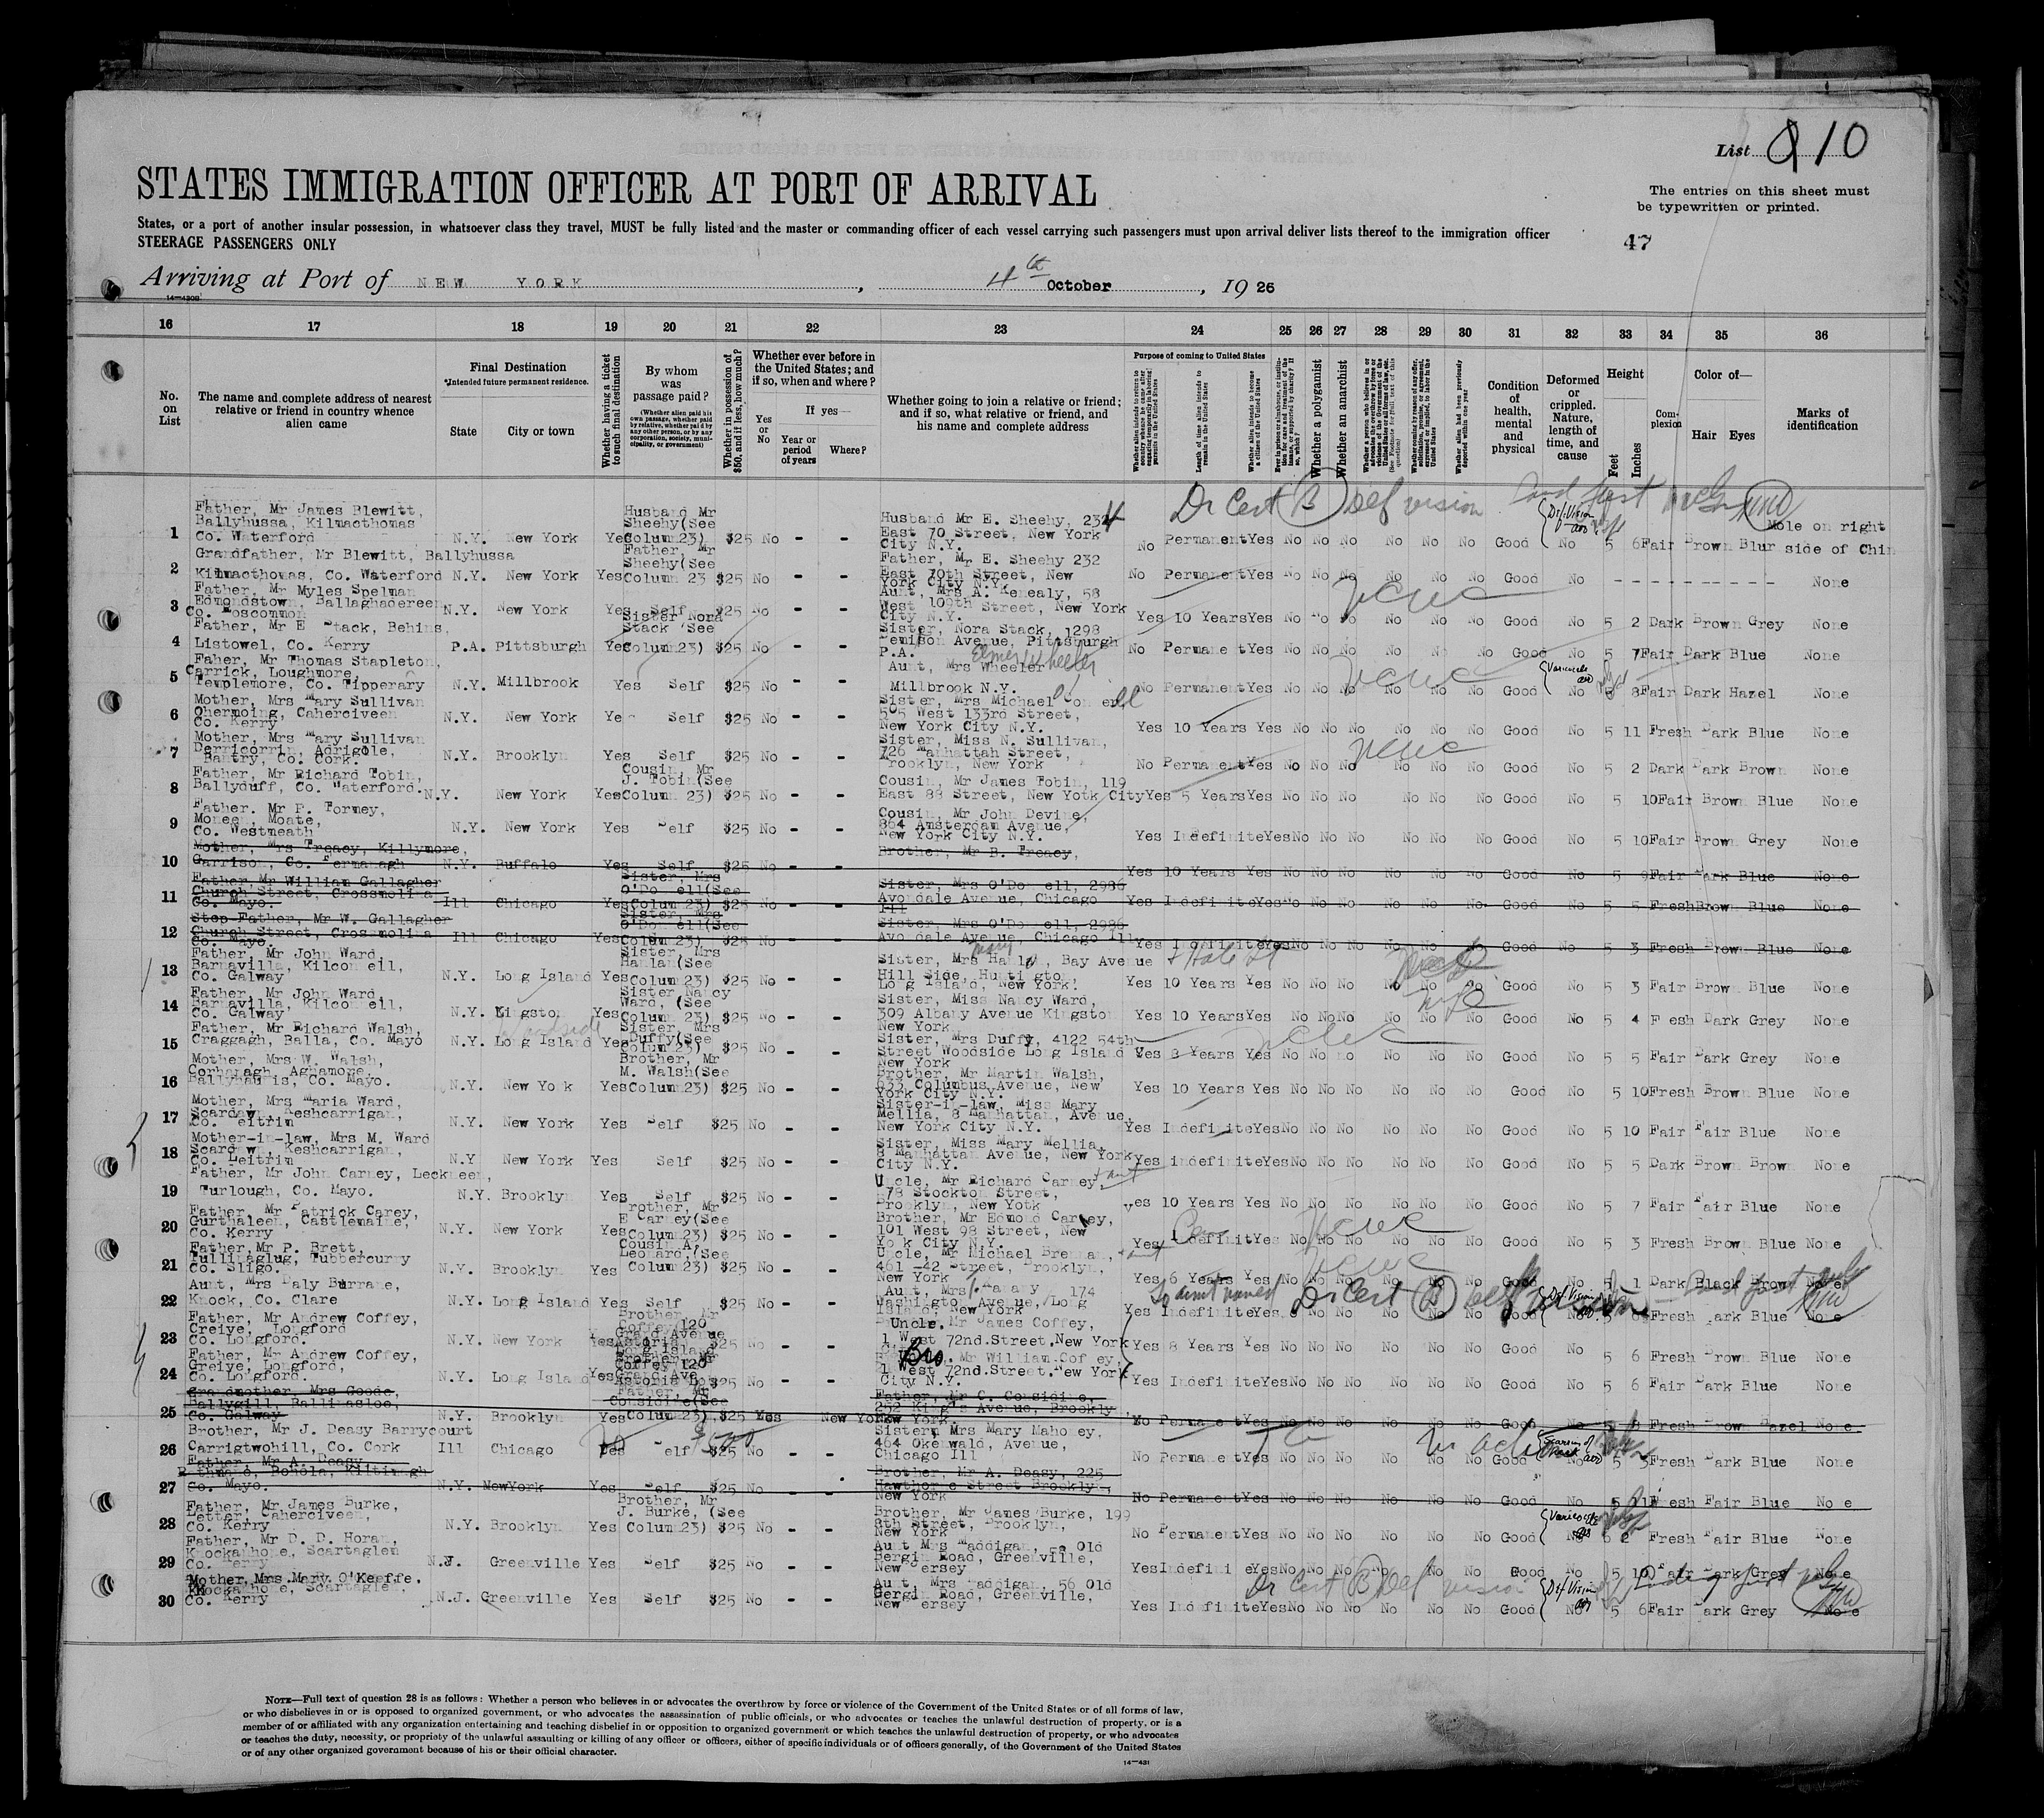 List 9 10
STATES IMMIGRATION OFFICER AT PORT OF ARRIVAL
The entries on this sheet must
be typewritten or printed.
States, or a port of another insular possession, in whatsoever class they travel, MUST be fully listed and the master or commanding officer of each vessel carrying such passengers must upon arrival deliver lists thereof to the immigration officer
STEERAGE PASSENGERS ONLY
47
Arriving at Port of NEW YORK, 4th October, 1926
14—4308
16 17 18 19 20 21 22 23 24 25 26 27 28 29 30 31 32 33 34 35 36
No. on List
The name and complete address of nearest relative or friend in country whence alien came
Final Destination
*Intended future permanent residence.
State
City or town
Whether having a ticket to such final destination
By whom was passage paid?
(Whether alien paid his own passage, whether paid by relative, whether paid by any other person, or by any corporation, society, municipality, or government)
Whether in possession of $50, and if less, how much?
Whether ever before in the United States; and if so, when and where?
Yes or No
If yes—
Year or period of years
Where?
Whether going to join a relative or friend; and if so, what relative or friend, and his name and complete address
Purpose of coming to United States
Length of time alien intends to remain in the United States
Whether alien intends to become a citizen of the United States
Whether a polygamist
Whether an anarchist
Whether alien had been previously deported within one year
Condition of health, mental and physical
Deformed or crippled. Nature, length of time, and cause
Height
Feet
Inches
Complexion
Color of—
Hair Eyes
Marks of identification
Dr Cert B Def vision
1 Father, Mr James Blewitt, Ballyhussa, Kilmacthomas Co. Waterford N.Y. New York Yes Husband Mr Sheehy(See Column23) $25 No - - Husband Mr E. Sheehy, 232 East 70 Street, New York City N.Y. No Permanent Yes No No No No No No Good No 5 6 Fair Brown Blur Mole on right side of Chin
2 Grandfather, Mr Blewitt, Ballyhussa Kilmacthomas, Co. Waterford N.Y. New York Yes Father, Mr Sheehy(See Column 23 $25 No - - Father, Mr E. Sheehy 232 East 70th Street, New York City N.Y. No Permanent Yes No No No No No No Good No - - - - - - - - - - None
3 Father, Mr Myles Spelman Edmondstown, Ballaghadereen Co. Roscommon N.Y. New York Yes Self $25 No - - Aunt, Mrs A. Kenealy, 58 West 109th Street, New York City N.Y. Yes 10 Years Yes No No No No No No Good No 5 2 Dark Brown Grey None
4 Father, Mr E Stack, Behins, Listowel, Co. Kerry P.A. Pittsburgh Yes Sister Nora Stack (See Column23) $25 No - - Sister, Nora Stack, 1298 Avenue, Pittsburgh P.A. No Permanent Yes No No No No No No Good No 5 7 Fair Dark Blue None
5 Faher, Mr Thomas Stapleton, Carrick, Loughmore, Templemore, Co. Tipperary N.Y. Millbrook Yes Self $25 No - - Aunt, Mrs Wheeler Elmer Wheeler Millbrook N.Y. No Permanent Yes No No No No No No Good Varicocele No 5 8 Fair Dark Hazel None
6 Mother, Mrs Mary Sullivan Ohermoing, Caherciveen Co. Kerry N.Y. New York Yes Self $25 No - - Sister, Mrs Michael 505 West 133rd Street, New York City N.Y. Yes 10 Years Yes No No No No No No Good No 5 11 Fresh Dark Blue None
7 Mother, Mrs Mary Sullivan Derricorrin, Adrigole, Bantry, Co. Cork. N.Y. Brooklyn Yes Self $25 No - - Sister, Miss N. Sullivan, 726 Manhattan Street, Brooklyn, New York No Permanent Yes No No No No No No Good No 5 2 Dark Dark Brown None
8 Father, Mr Richard Tobin, Ballyduff, Co. Waterford. N.Y. New York Yes Cousin, Mr J. Tobin(See Column 23) $25 No - - Cousin, Mr James Tobin, 119 East 88 Street, New York City Yes 5 Years Yes No No No No No No Good No 5 10 Fair Brown Blue None
9 Father. Mr P. Formey, Moneen, Moate, Co. Westmeath N.Y. New York Yes Self $25 No - - Cousin, Mr John Devine, 864 Amsterdam Avenue, New York City N.Y. Yes Indefinite Yes No No No No No No Good No 5 10 Fair Brown Grey None
10 Mother, Mrs Treacy, Killymore, Garrison, Co. Fermanagh N.Y. Buffalo Yes Self $25 No - - Brother, Mr B. Treacy, Yes 10 Years Yes No No No No No No Good No 5 9 Fair Dark Blue None
11 Father, Mr William Gallagher Church Street, Crossmolina Co. Mayo. Ill Chicago Yes Sister, Mrs O'Donnell(See Column23) $25 No - - Sister, Mrs O'Donnell, 2986 Avondale Avenue, Chicago Ill Yes Indefinite Yes No No No No No No Good No 5 5 Fresh Brown Blue None
12 Step-Father, Mr W. Gallagher Church Street, Crossmolina Co. Mayo Ill Chicago Yes Sister, Mrs O'Donnell(See Column 23) $25 No - - Sister, Mrs O'Donnell, 2986 Avondale Avenue, Chicago Ill Yes Indefinite Yes No No No No No No Good No 5 3 Fresh Brown Blue None
13 Father, Mr John Ward Barnavilla, Kilconneil, Co. Galway N.Y. Long Island Yes Sister, Mrs Hanlan(See Column 23) $25 No - - Sister, Mrs Mary Bay Avenue Hill Side, Huntington Long Island, New York. Yes 10 Years Yes No No No No No No Good No 5 3 Fair Brown Blue None
14 Father, Mr John Ward Barnavilla, Kilconneil, Co. Galway N.Y. Kingston Yes Sister Nancy Ward, (See Column 23) $25 No - - Sister, Miss Nancy Ward, 309 Albany Avenue Kingston New York Yes 10 Years Yes No No No No No No Good No 5 4 Fresh Dark Grey None
15 Father, Mr Richard Walsh, Craggagh, Balla, Co. Mayo N.Y. Woodside Long Island Yes Sister, Mrs Duffy(See Column23) $25 No - - Sister, Mrs Duffy, 4122 54th Street Woodside Long Island New York Yes 8 Years Yes No No No No No No Good No 5 5 Fair Dark Grey None
16 Mother, Mrs W. Walsh, Corhanagh, Aghamore, Ballyhaunis, Co. Mayo. N.Y. New York Yes Brother, Mr M. Walsh(See Column23) $25 No - - Brother, Mr Martin Walsh, 633 Columbus Avenue, New York City N.Y. Yes 10 Years Yes No No No No No No Good No 5 10 Fresh Brown Blue None
17 Mother, Mrs Maria Ward, Scardawn, Keshcarrigan, Co. Leitrim N.Y. New York Yes Self $25 No - - Sister-in-law, Miss Mary Mellia, 8 Manhattan, Avenue, New York City N.Y. Yes Indefinite Yes No No No No No No Good No 5 10 Fair Fair Blue None
18 Mother-in-law, Mrs M. Ward Scardawn, Keshcarrigan, Co. Leitrim N.Y New York Yes Self $25 No - - Sister, Miss Mary Mellia, 8 Manhattan Avenue, New York City N.Y. Yes indefinite Yes No No No No No No Good No 5 5 Dark Brown Brown None
19 Father, Mr John Carney, Leckneen, Turlough, Co. Mayo. N.Y. Brooklyn Yes Self $25 No - - Uncle, Mr Richard Carney, + aunt 78 Stockton Street, Brooklyn, New York Yes 10 Years Yes No No No No No No Good No 5 7 Fair Fair Blue None
20 Father, Mr Patrick Carey, Gurthaleen, Castlemaine, Co. Kerry N.Y. New York Yes Brother, Mr E Carney(See Column23) $25 No - - Brother, Mr Edmond Carney, 101 West 98 Street, New York City N.Y. Yes Indefinite Yes No No No No No No Good No 5 3 Fresh Brown Blue None
21 Father, Mr P. Brett, Tullinaglug, Tubbercurry Co. Sligo. N.Y. Brooklyn Yes Cousin A. Leonard,(See Column 23) $25 No - - Uncle, Mr Michael Brennan, 461 -42 Street, Brooklyn, New York Yes 6 Years Yes No No No No No No Good No 5 1 Dark Black Brown None
Dr Cert B Def vision
22 Aunt, Mrs Daly Burrane, Knock, Co. Clare N.Y. Long Island Yes Self $25 No - - Aunt, Mrs 174 Washington Avenue, Long New York Yes Indefinite Yes No No No No No No Good No 5 6 Fresh Dark Blue None
23 Father, Mr Andrew Coffey, Creiye, Longford Co. Longford. N.Y. New York Yes Brother Mr Coffey 120 Grand Avenue Astoria Long Island $25 No - - Uncle, Mr James Coffey, 1 West 72nd.Street, New York Yes 8 Years Yes No No No No No No Good No 6 Fresh Brown Blue None
24 Father, Mr Andrew Coffey, Greiye, Longford, Co. Longford. N.Y. Long Island Yes Coffey 120 Grand Ave Astoria $25 No - - Bro. Mr William Coffey, 1 West 72nd.Street.New York City N.Y. Yes Indefinite Yes No No No No No No Good No 5 6 Fair Dark Blue None
25 Grandmother, Mrs Goode, Ballygill, Ballinasloe, Co. Galway N.Y. Brooklyn Yes Father, Mr Considine(See Column 23) $25 Yes New York Father, Mr C. Considine, 252 King's Avenue, Brooklyn, New York. No Permanent Yes No No No No No No Good No 5 Fresh Brown Hazel None
26 Brother, Mr J. Deasy Barrycourt Carrigtwohill, Co. Cork Ill Chicago Yes Self $25 No - - Sister, Mrs Mary Mahoney, 464 Okenwald, Avenue, Chicago Ill No Permanent Yes No No No No No No Good No 5 5 Fresh Dark Blue None
27 Father, Mr A. Deasy Rathmaid, Bohola, Kiltimagh Co. Mayo. N.Y. NewYork Yes Self $25 No - - Brother, Mr A. Deasy, 225 Hawthorne Street Brooklyn, New York No Permanent Yes No No No No No No Good No 5 11 Fresh Fair Blue None
28 Father, Mr James Burke, Letter, Caherciveen, Co. Kerry N.Y. Brooklyn Yes Brother, Mr J. Burke, (See Column23) $25 No - - Brother, Mr James Burke, 199 8th Street, Brooklyn, New York No Permanent Yes No No No No No No Good Varicocele No 6 2 Fresh Fair Blue None
29 Father, Mr D. D. Horan, Knockahone, Scartaglen Co. Kerry N.J. Greenville Yes Self $25 No - - Aunt Mrs Maddigan, 56 Old Bergin Road, Greenville, New Jersey Yes Indefinite Yes No No No No No No Good No 5 10 Fair Dark Grey None
Dr Cert B Def vision
30 Mother, Mrs. Mary O'Keeffe. Knockahone, Scartaglen, Co. Kerry N.J. Greenville Yes Self $25 No - - Aunt, Mrs Maddigan, 56 Old Bergin Road, Greenville, New Jersey Yes Indefinite Yes No No No No No No Good Def Vision No 5 6 Fair Dark Grey None
NOTE—Full text of question 28 is as follows: Whether a person who believes in or advocates the overthrow by force or violence of the Government of the United States or of all forms of law,
or who disbelieves in or is opposed to organized government, or who advocates the assassination of public officials, or who advocates or teaches the unlawful destruction of property, or is a
member of or affiliated with any organization entertaining and teaching disbelief in or opposition to organized government or which teaches the unlawful destruction of property, or who advocates
or teaches the duty, necessity, or propriety of the unlawful assaulting or killing of any officer or officers, either of specific individuals or of officers generally, of the Government of the United States
or of any other organized government because of his or their official character.
14—431